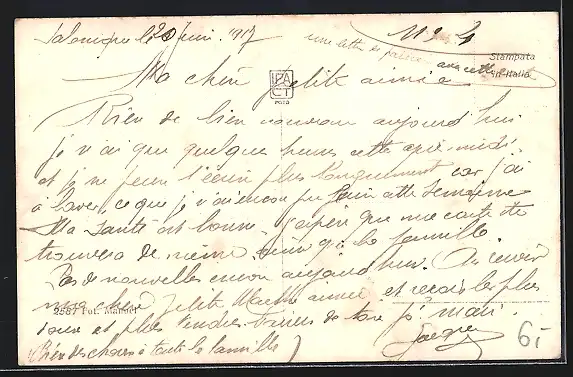 Salonique le 20 Juin 1917 N° 4
une lettre avec cette
Stampata
in Italia
Ma chère petite aimée
IPA
CT
Rien de bien nouveau aujourd'hui
je n'ai que quelques heures cette après-midi
et je ne peux t'écrire plus longuement car j'ai
à laver, ce que je n'ai encore pu faire cette semaine
Ma santé est bonne. J'espère que ma carte te
trouvera de même ainsi que la famille.
Pas de nouvelles encore aujourd'hui. Au revoir
ma chère petite Marthe aimée et reçois les plus
2557 Fot. Mauner
doux et plus tendres baisers de ton p. mari
(Bien des choses à toute la famille) Georges
6,-